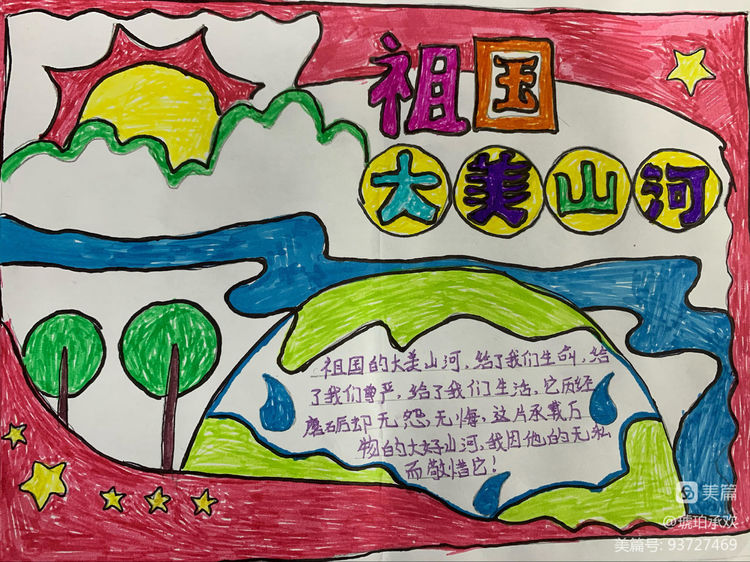 祖国
大美山河
祖国的大美山河,给了我们生命,给
了我们尊严,给了我们生活,它历经
磨砺却无怨无悔,这片承载万
物的大好山河,我因他的无私
而敬惜它!
美篇
@琥珀承欢
美篇号: 93727469